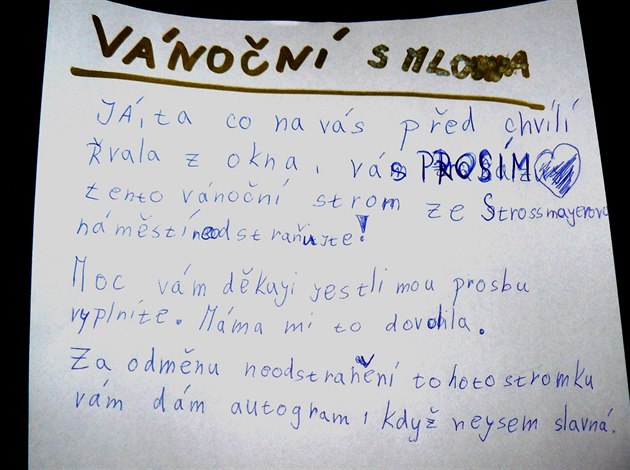 VÁNOČNÍ SMLOUVA
JÁ, ta co na vás před chvílí
řvala z okna, vás PROSÍM
tento vánoční strom ze Strossmayerova
náměstí neodstraňujte!
Moc vám děkuji jestli mou prosbu
vyplníte. Máma mi to dovolila.
Za odměnu neodstranění tohoto stromku
vám dám autogram i když nejsem slavná.